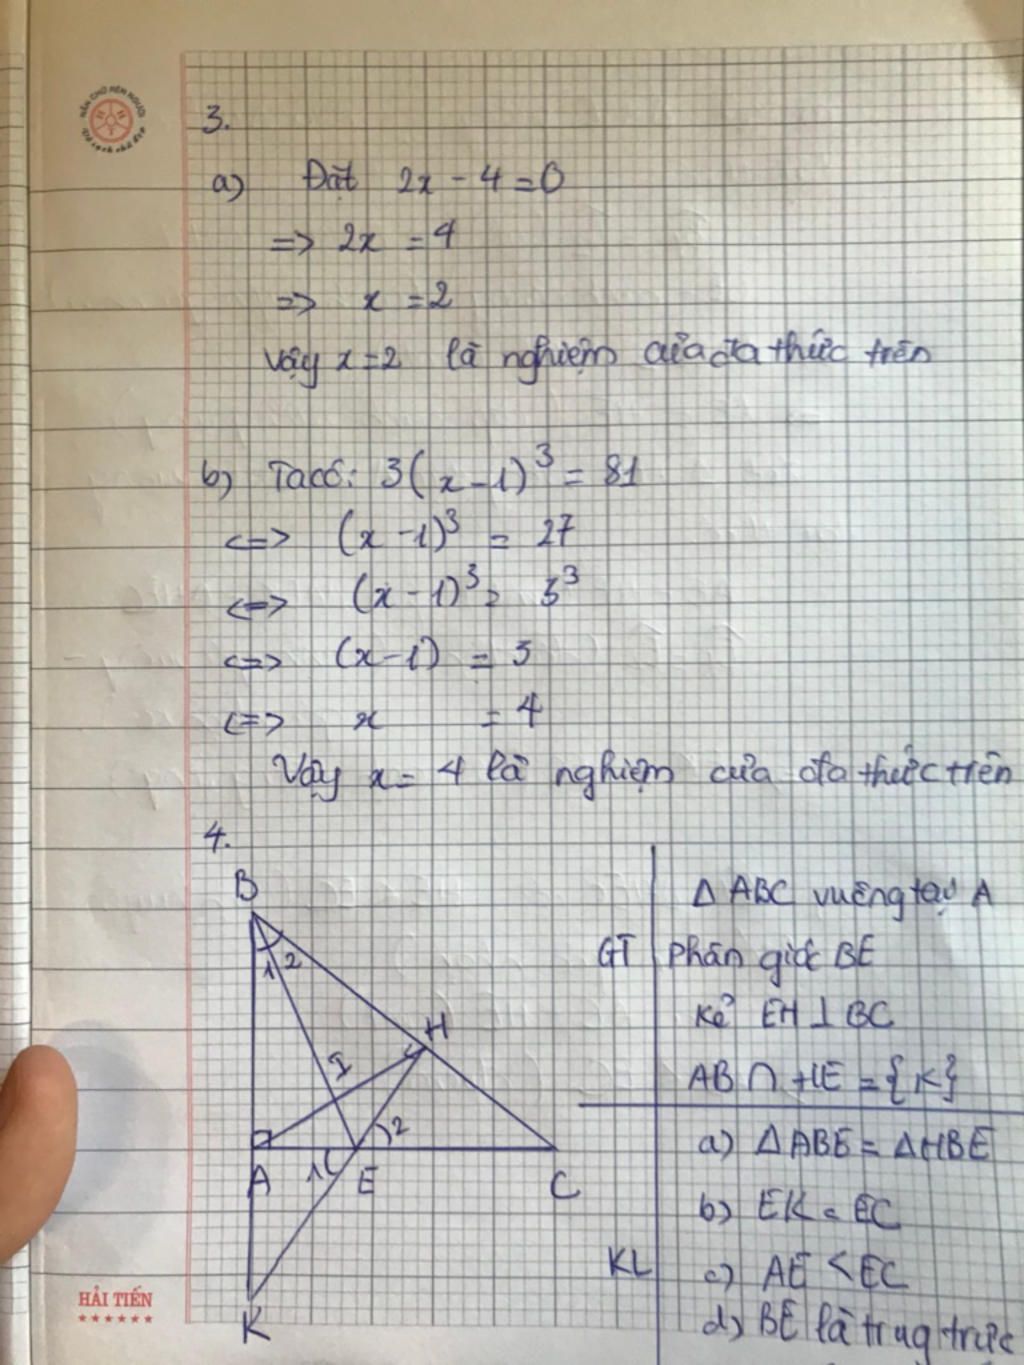 NÂN CHỮ NÊN NGƯỜI
3.
a) Đặt 2x - 4 = 0
=> 2x = 4
=> x = 2
Vậy x = 2 là nghiệm của đa thức trên
b) Ta có: 3(x-1)³ = 81
<=> (x-1)³ = 27
<=> (x-1)³ = 3³
<=> (x-1) = 3
<=> x = 4
Vậy x = 4 là nghiệm của đa thức trên
4.
B
1 2
H
I
2
A 1 E C
K
Δ ABC vuông tại A
GT phân giác BE
Kẻ EH ⊥ BC
AB ∩ HE = {K}
a) Δ ABE = Δ HBE
b) EK = EC
KL c) AE < EC
d) BE là trug trực
HẢI TIẾN